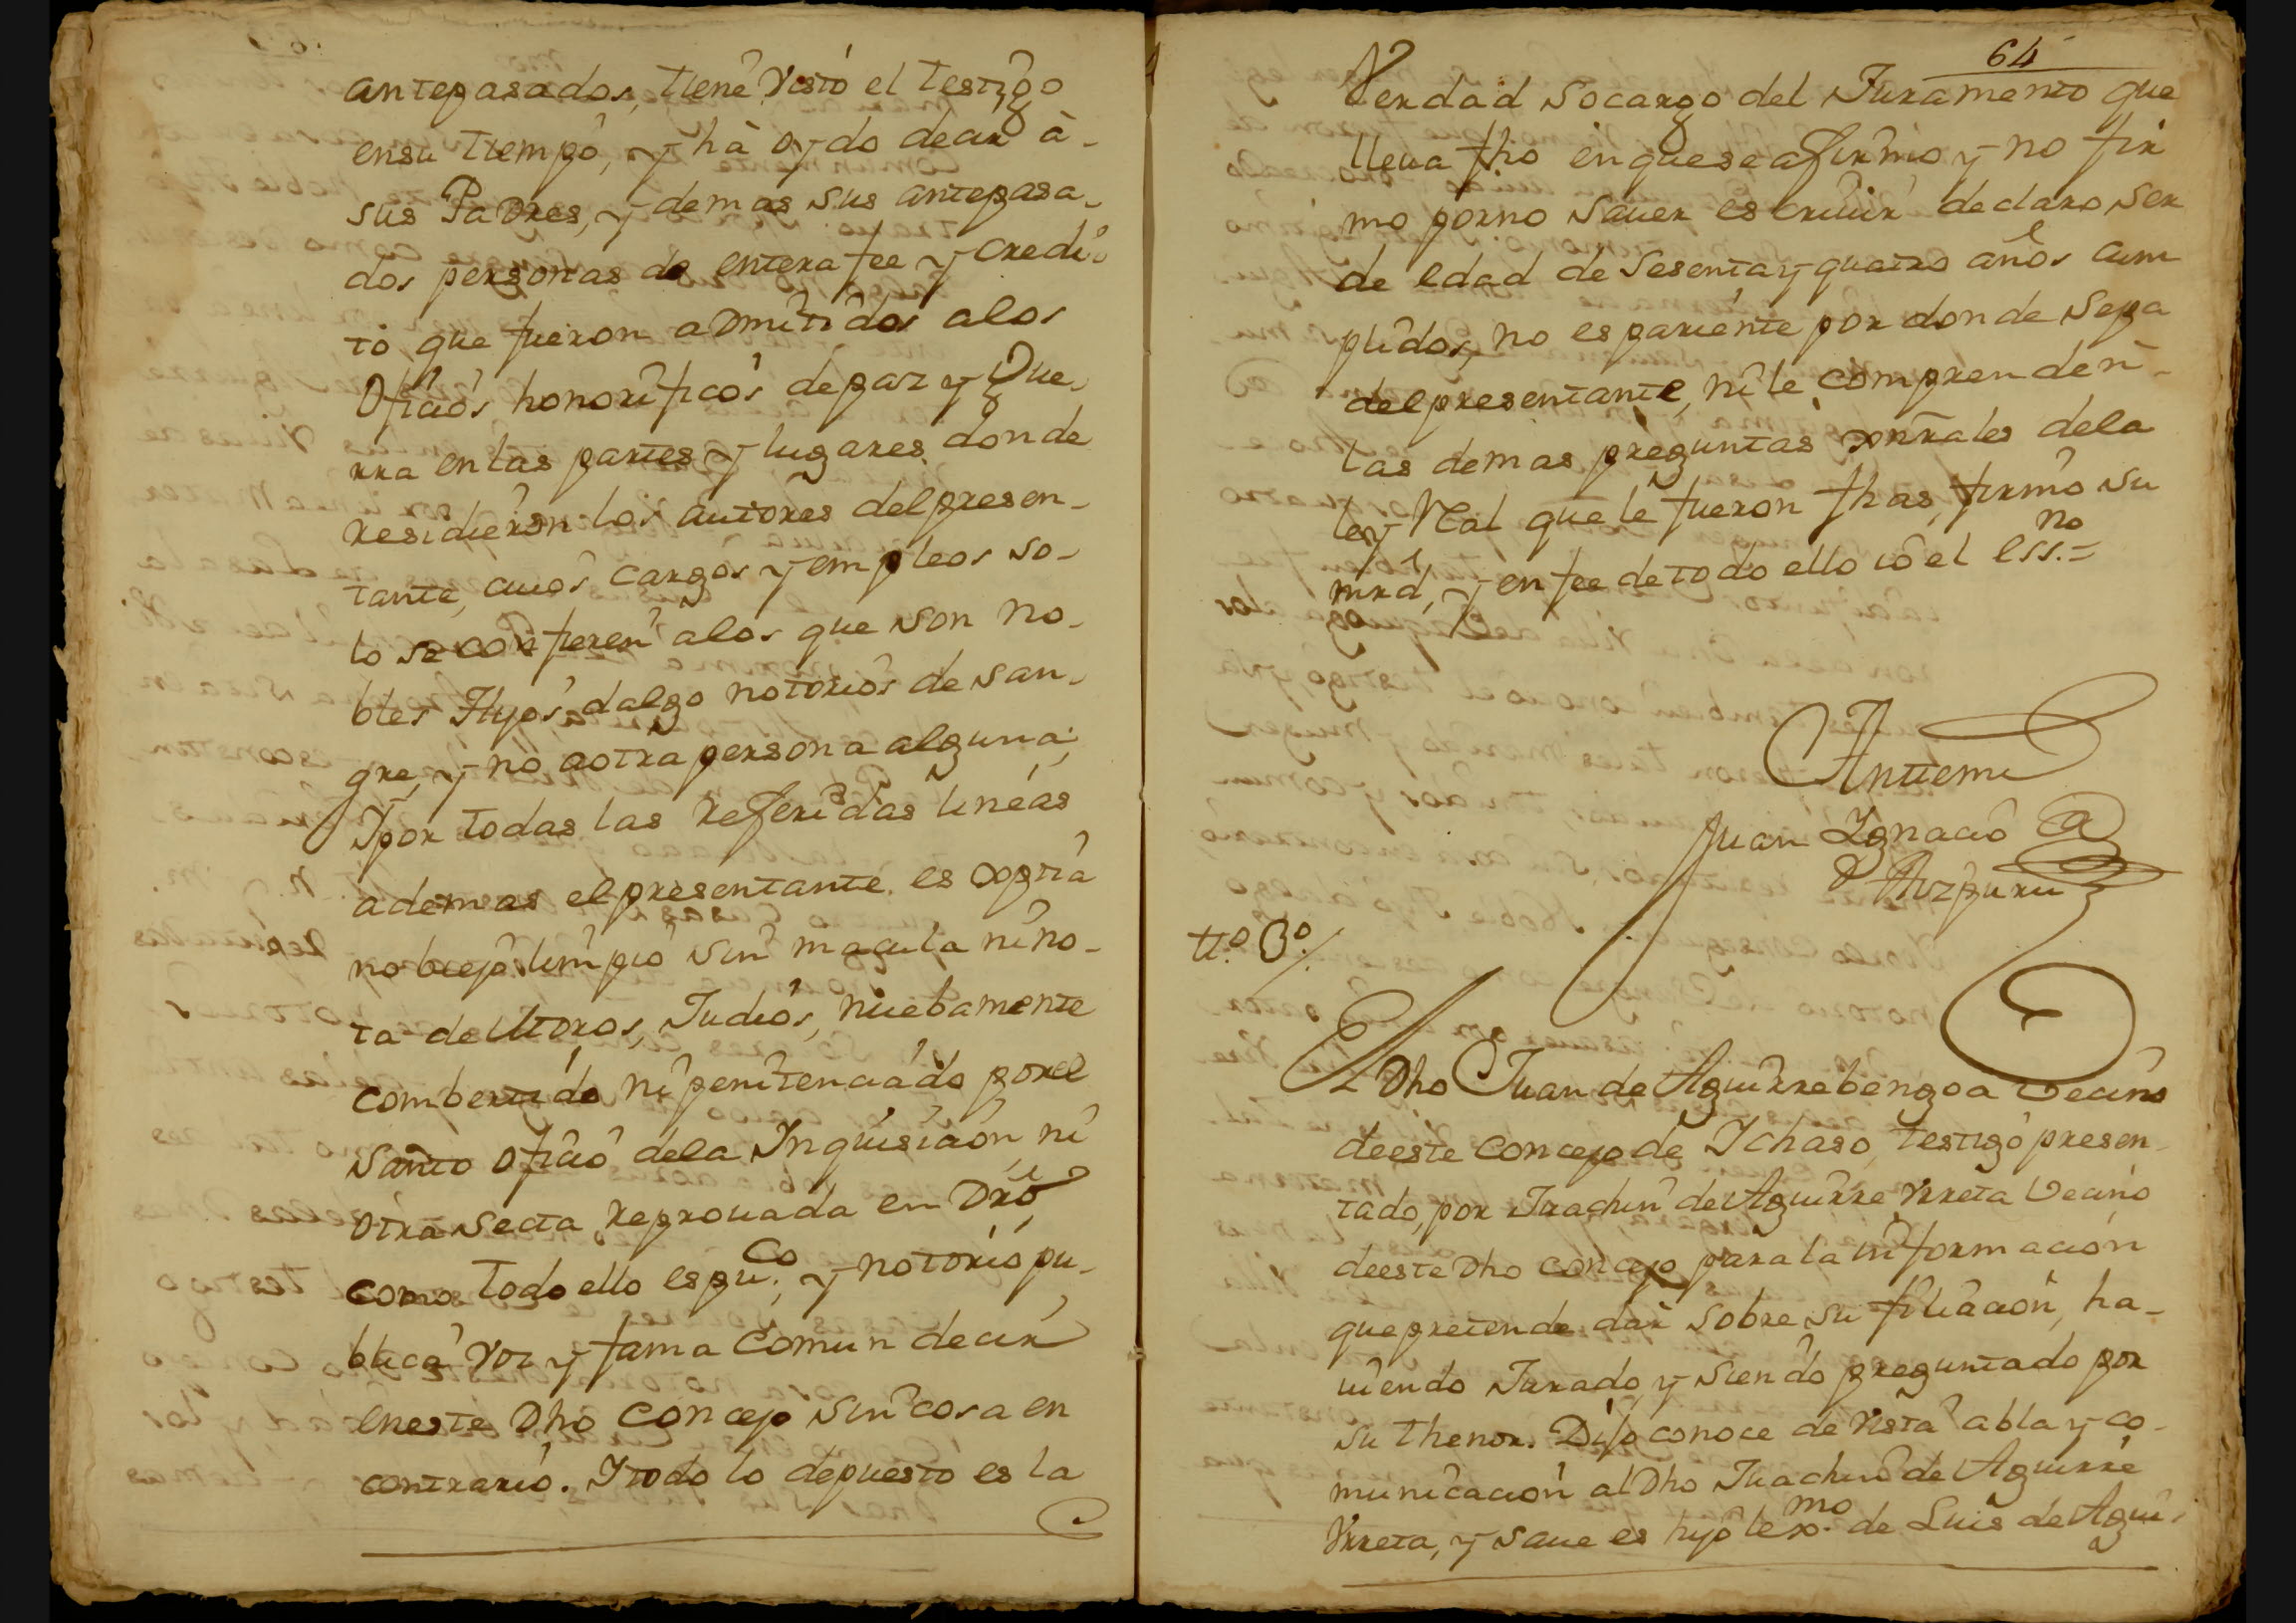 antepasados, tiene visto el testigo
ensu tiempo, y hà oydo decir à
sus Padres, y demas sus antepasa-
dos personas de entera fee y credi-
to, que fueron admitidos alos
Oficios honorificos depaz y Gue-
rra enlas partes y lugares donde
residieron los autores delpresen-
tante, cuios cargos y empleos so-
lo se confieren alos que son no-
bles Hyos dalgo notorios de san-
gre, y no aotra persona alguna;
Ypor todas las referidas lineas
ademas elpresentante es xptia
no biejo limpio sin macula nino-
ta de Moros, Judios, nuebamente
combertido ni penitenciado porel
Santo oficio dela Inquisicion, ni
otra secta reprouada en Dro
como todo ello espu.co y notorio pu-
blica voz y fama comun decir
eneste Dho concejo sin cosa en
contrario. Ytodo lo depuesto es la
64
Verdad socargo del Juramento que
lleua fho enquese afirmo y no fir
mo porno sauer escriuir declaro ser
de edad de sesenta y quatro años cum
plidos, no es pariente por donde sepa
delpresentante, nile comprenden
las demas preguntas xnrales dela
ley Real que le fueron fhas, firmo su
mrd, y en fee detodo ello io el Ess.no=
Antemi
Juan Ygnacio
D Aizpuru
tt.o 3.o
El Dho Juan de Aguirrebengoa vecino
deeste concejo de Ichaso, testigo presen
tado, por Juachin de Aguirre Vrreta vecino
deeste Dho concejo para la informacion
quepretende dar sobre su filiacion, ha-
uiendo Jurado, y siendo preguntado por
su thenor. Dijo conoce de vista abla y co-
municacion alDho Juachin de Aguirre
Vrreta, y saue es hyo lexmo. de Luis de Agui-